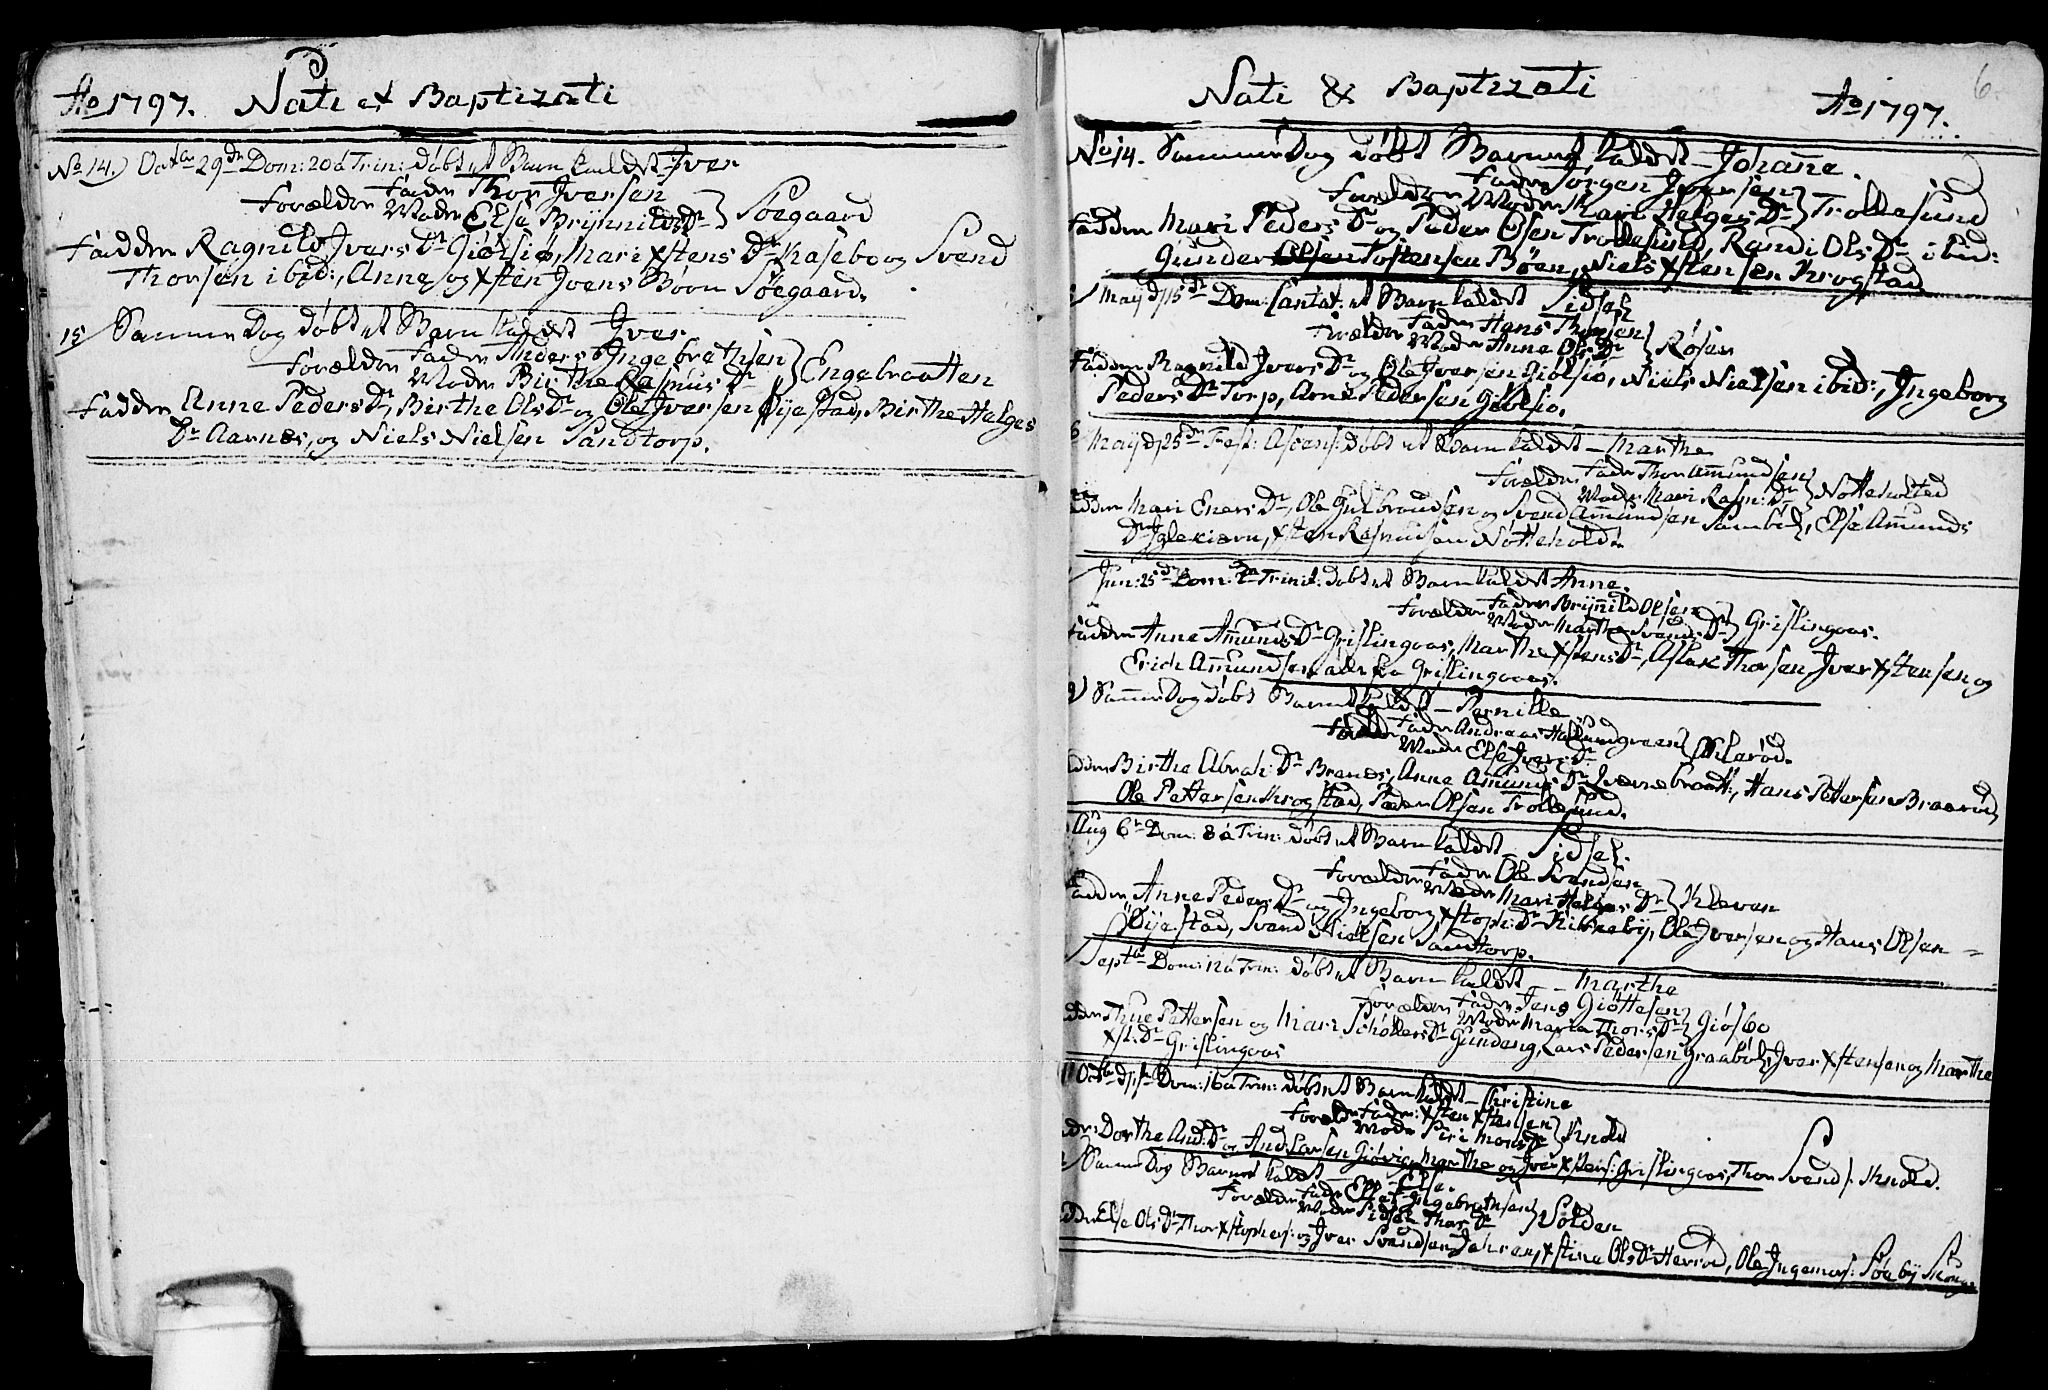 Ao 1797. Nati et Baptizati
No 14.) Octbr 29de Dom: 20 á Trin: døbt et Barn kaldet Iver
Forældre Fader Thor Iversen
Moder Else Brÿnnilds Dr } Søegaard
Faddere Ragnild Ivers Dr Giølsiø, Mari Xstens Dr Kasebo og Svend
Thorsen ibid:, Anne og Xsten Ivers Børn Søegaard.
15/ Samme Dag døbt et Barn kaldet Iver
Forældre Fader Anders Ingebrethsen
Moder Birthe Rasmus Dr } Engebraatten
Faddere Anne Peders Dr, Birthe Ols Dr og Ole Iversen Øijestad, Birthe Helges
Dr Aarnes, og Niels Nielsen Sandtorp.
Nati & Baptizati
Ao 1797.
6
No 14. Samme Dag døbt Barnet kaldet Johane.
Forældre Fader Jørgen Iversen
Moder Mari Helges Dr } Trollesund
Faddere Mari Peders Dr og Peder Olsen Trollesund, Randi Ols Dr ibid:
Gunder Olsen Tostensen Bøen, Niels Xstensen Krogstad
/ Maij d 15de Dom: Cantat: et Barn kaldet Sidsel
Forældre Fader Hans Thorsen
Moder Anne Ols Dr } Røsen
Faddere Ragnild Ivers Dr og Ole Iversen Giølsiø, Niels Nielsen ibid:, Ingeborg
Peders Dr Torp, Arne Pedersen Giølsiø.
Maij d 25de Fest: Ascens: døbt et Barn kaldet Marthe
Forældre Fader Thor Amundsen
Moder Mari Rasm: Dr } Nøtteholted
Faddere Mari Eners Dr, Ole Gulbrandsen og Svend Amundsen ibid, Else Amunds
Dr Iglekiærn, Xsten Rasmusen Nøtteholdt.
Jun: 25de Dom: 2 Trinit: døbt et Barn kaldet Anne.
Forældre Fader Brÿnnild Olsen
Moder Marthe Svends Dr } Grislingaas.
Faddere Anne Amunds Dr Grislingaas, Marthe Xstens Dr, Aslak Thorsen Iver Xstensen og
Erich Amundsen alle fra Grislingaas.
Samme Dag døbt Barnet kaldet Pernille
Forældre Fader Andreas Hallundgreen
Moder Else Ivers Dr } Oklerød.
Faddere Birthe Abrah: Dr Brenes, Anne Amunds Dr Qværnebraatt:, Hans Pettersen Braarud
Ole Pettersen Krogstad, Peder Olsen Trollesund.
Aug 6te Dom: 8 á Trin: døbt et Barn kaldet Sidsel.
Forældre Fader Ole Svendsen
Moder Mari Helges Dr } Kleven
Faddere Anne Peders Dr og Ingeborg Xstoph: Dr Kirkebÿ, Ole Iversen og Hans Olsen
Øijestad, Svend Nielsen Sandtorp.
Septbr Dom: 12 á Trin: døbt et Barn kaldet Marthe
Forældre Fader Jens Giøttesen
Moder Maria Thors Dr } Giøsbo
Faddere Thue Pettersen og Mari Schøllers Dr Gundeng, Lars Pedersen Graabøl, Iver Xstensen og Marthe
Xst: Dr Grislingaas
Octbr d 1ste Dom: 16 á Trin: døbt et Barn kaldet Christine
Forældre Fader: Xsten Xstensen
Moder Siri Mons Dr } Knold
Faddere: Dorthe And: Dr og And: Larsen Giøvig, Marthe og Iver Xstens: Grislingaas, Thor Svends: Knold.
/ Samme Dag Barnet kaldet Else.
Forældre Fader Ellef Ingebrethsen
Moder Sidsel Thor Dr } Solden
Faddere Else Ols Dr Thor Xstophers: og Iver Svendsen Jahren, Xstine Ols Dr Herrød, Ole Ingemars: Søebÿ